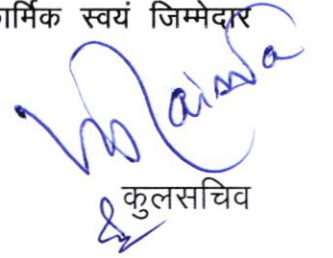 कार्मिक स्वयं जिम्मेदार
कुलसचिव